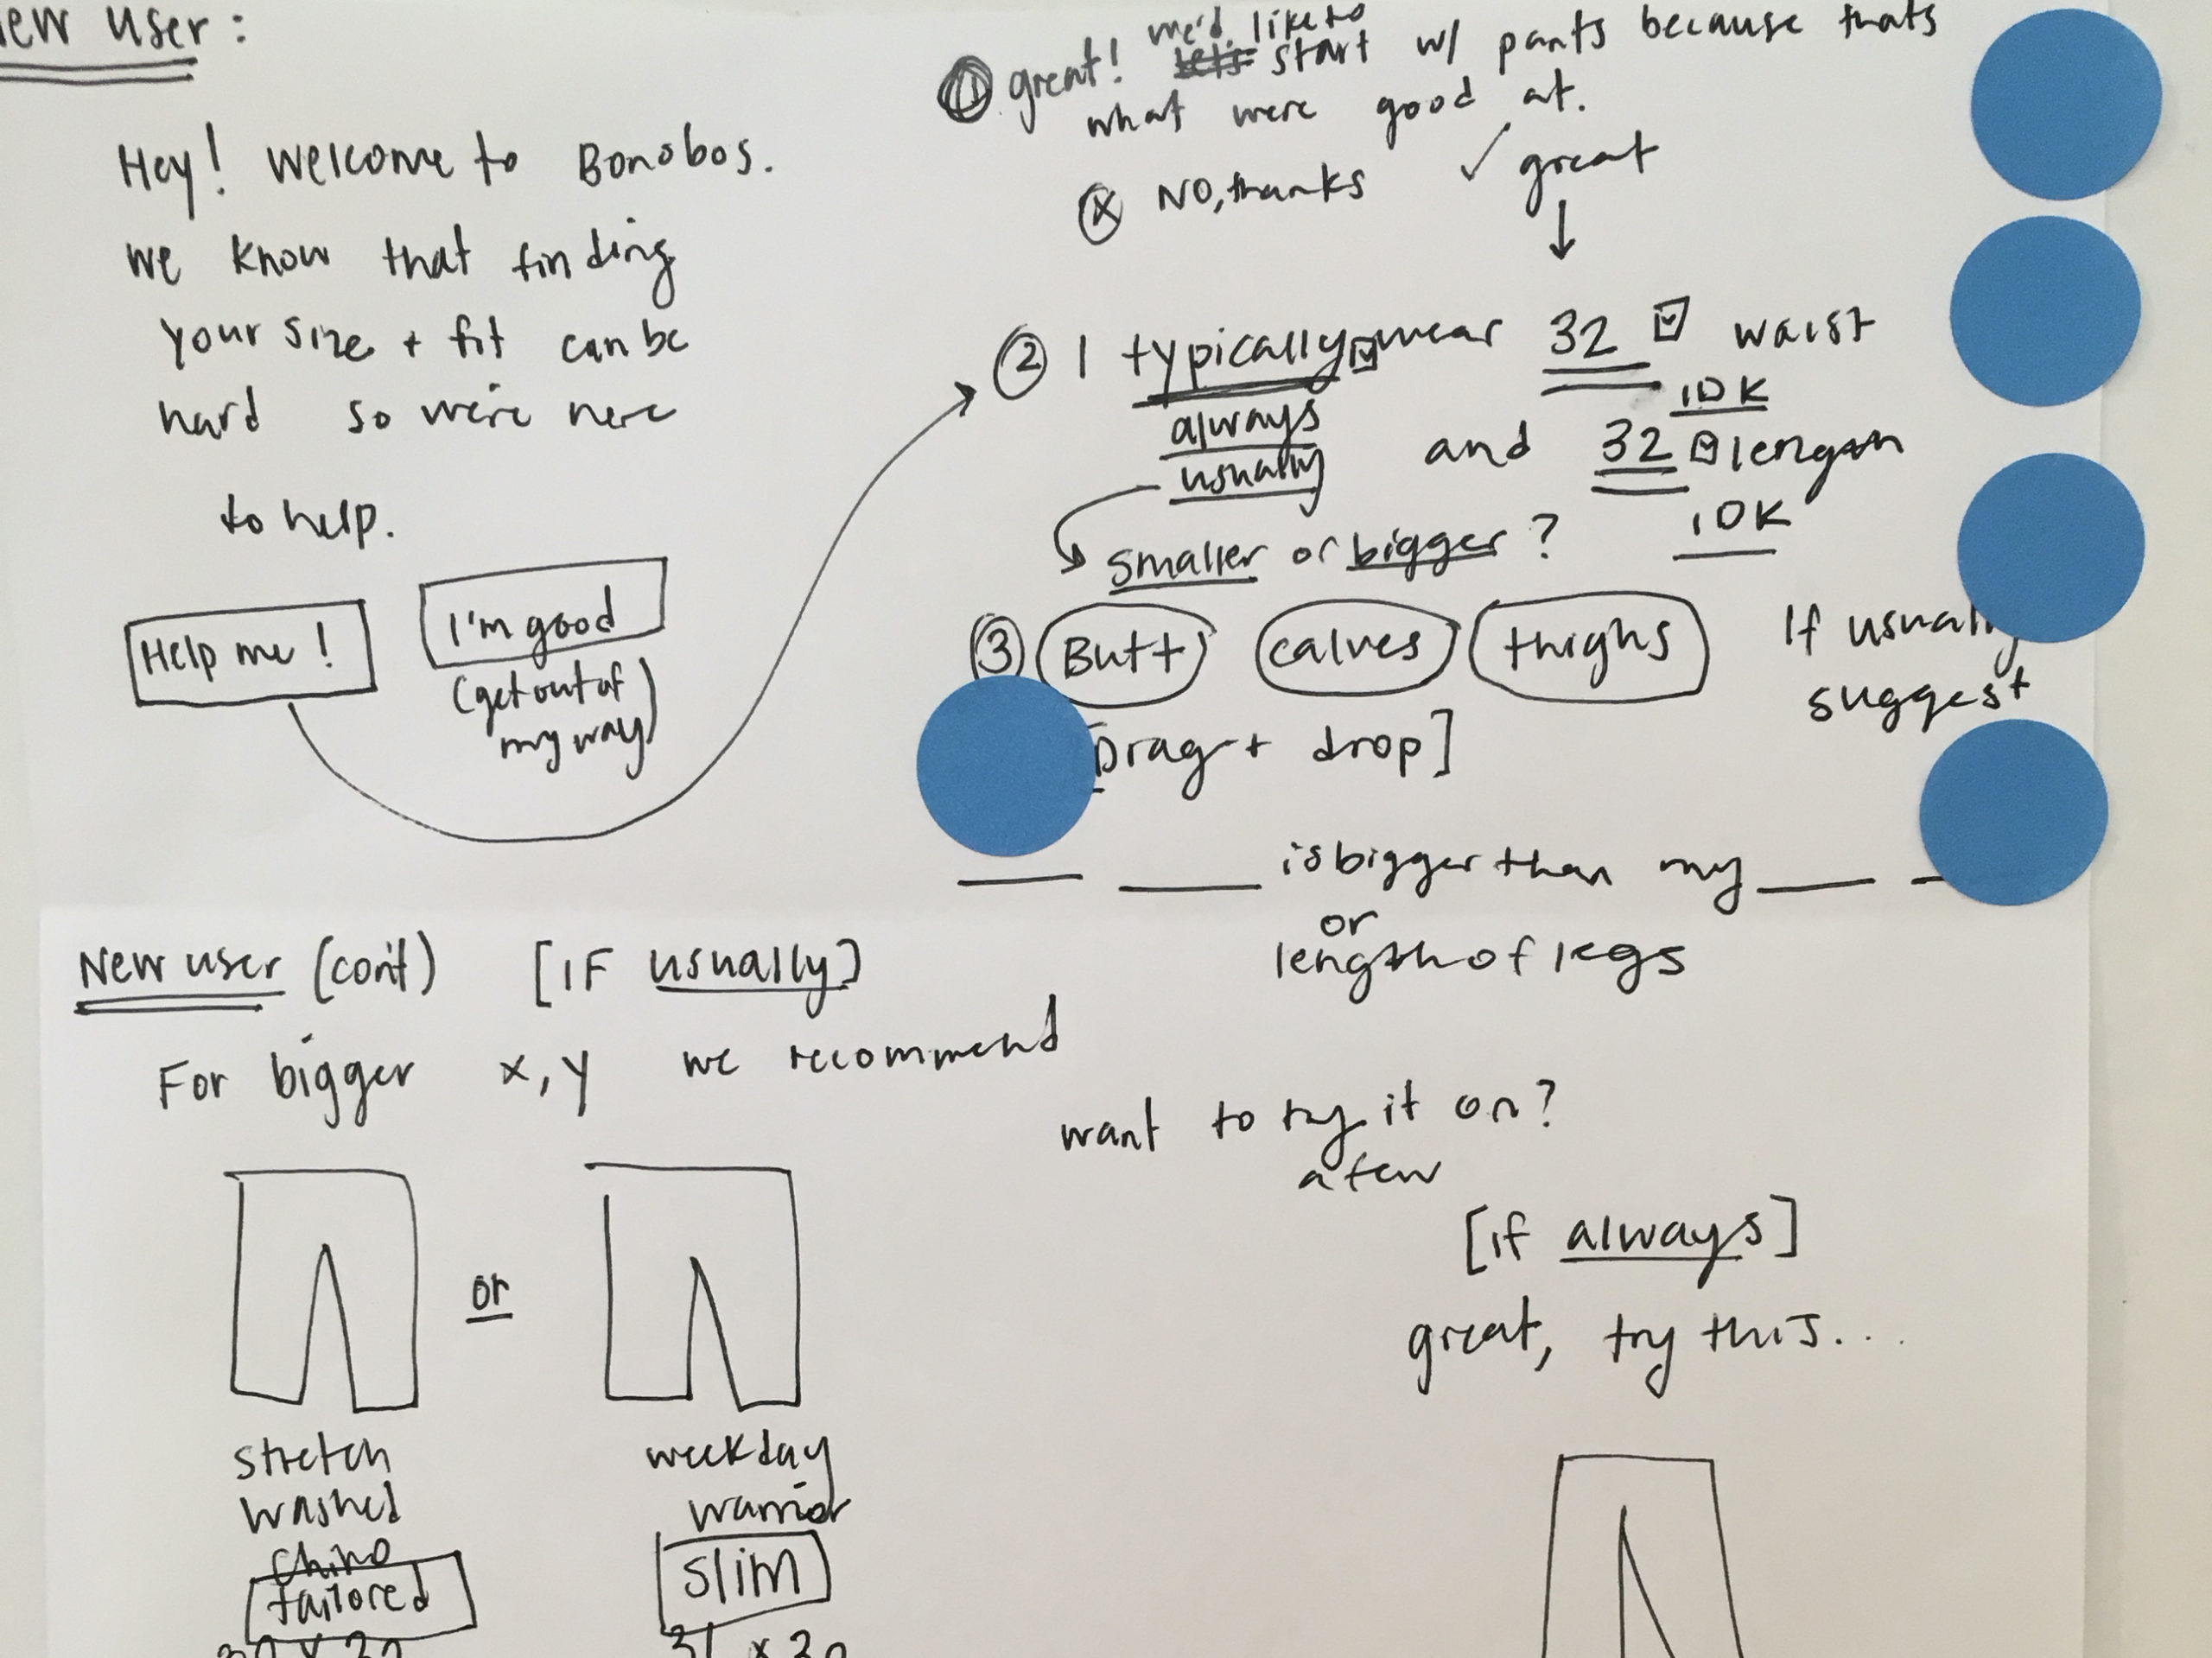 New User:
Hey! Welcome to Bonobos.
we know that finding
your size + fit can be
hard so we're here
to help.
Help me!
I'm good
(get out of
my way)
① great! we'd like to
let's start w/ pants because thats
what were good at.
Ⓧ NO, thanks ✓ great
② I typically wear 32 waist
IDK
always
usually
and 32 length
IDK
smaller or bigger?
③ Butt calves thighs
If usually
suggest
[Drag + drop]
is bigger than my
or
length of legs
New user (con't) [IF usually]
For bigger x, y we recommend
want to try it on?
a few
[if always]
great, try this...
or
stretch
washed
chino
tailored
weekday
warrior
slim